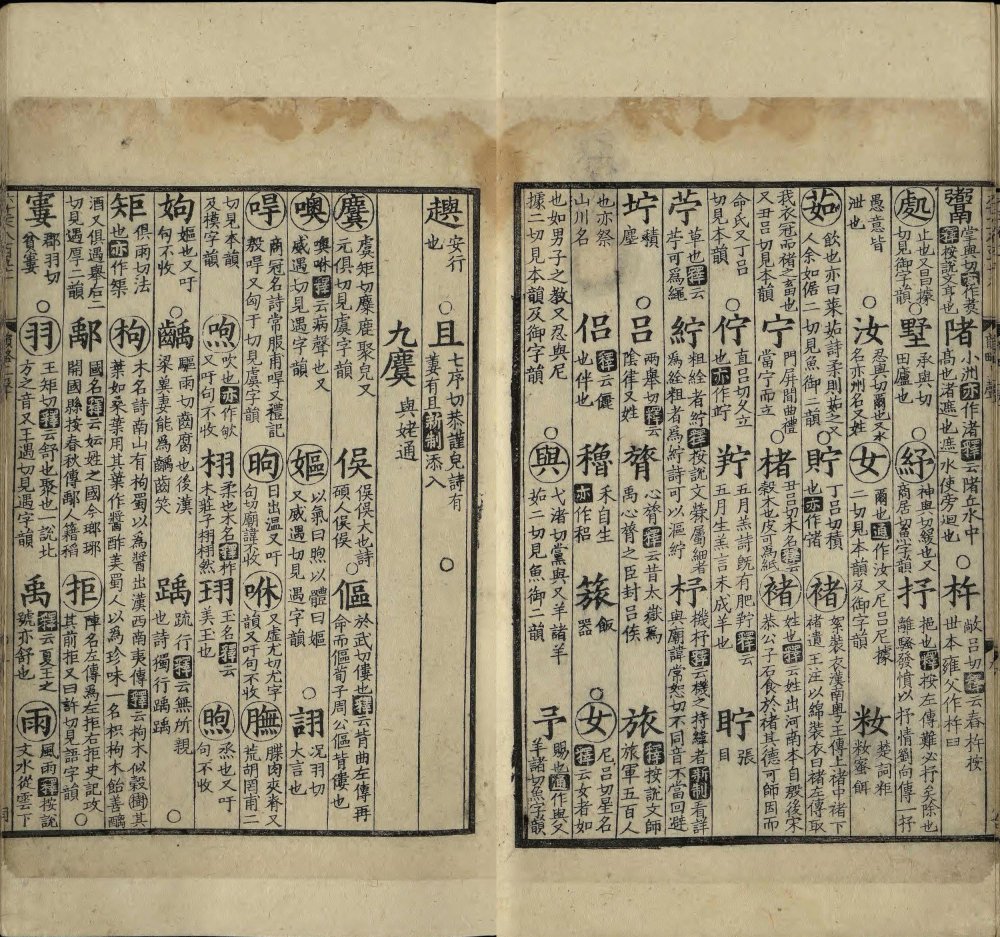 鬻 掌與切亦作煑釋按說文亨也○陼 小洲亦作渚釋云陼丘水中高也渚遮也遮水使旁迴也○杵 敞呂切釋云舂杵按世本雍父作杵臼
處 止也又昌據切見御字韻○墅 承與切田廬也○紓 神與切緩也又商居切魚字韻 抒 挹也釋按左傳難必抒矣除也離騷發憤以抒情劉向傳一抒
愚意皆泄也○汝 忍與切爾也又水名亦州名又姓 女 爾也通作汝又尼呂尼據二切見本韻及御字韻 籹 楚詞粔籹蜜餌
茹 飲也亦曰菜茹詩柔則茹之又人余如倨二切見魚御二韻○貯 丁呂切積也亦作㣥 褚 絮裝衣漢南粤王傳上褚中褚下褚遺王注以綿裝衣曰褚左傳取
我衣冠而褚之畜也又丑呂切見本韻 宁 門屏間曲禮當宁而立○楮 丑呂切木名釋云榖木也皮可為紙 褚 姓也釋云姓出河南本自殷後宋恭公子石食於褚其德可師因而
命氏又丁呂切見本韻○佇 直呂切久立也亦作竚 羜 五月羔詩旣有肥羜釋云五月生羔言未成羊也 貯 張目
苧 草也釋云苧可爲繩 紵 粗絟者紵釋按說文檾屬細者為絟粗者爲紵詩可以漚紵 杼 機杼釋云機之持緯者新制看詳與廟諱常恕切不同音不當回避
坾 積塵○呂 兩舉切釋云陰律又姓 膂 心膂釋云昔太嶽爲禹心膂之臣封呂侯 旅 釋按說文師旅軍五百人
也亦祭山川名 侶 釋云儷也伴也 穭 禾自生亦作稆 簇 飯器○女 尼呂切星名釋云女者如
也如男子之教又忍與尼據二切見本韻及御字韻○與 弋渚切黨與又羊諸羊茹二切見魚御二韻 予 賜也通作與又羊諸切魚字韻
䢩 安行也○且 七序切恭謹皃詩有萋有且新制添入○
九麌 與姥通
麌 虞矩切麋麈聚皃又元俱切見虞字韻 俁 俁俁大也詩碩人俁俁○傴 於武切僂也釋云背曲左傳再命而傴荀子周公傴背僂也
噢 噢咻釋云病聲也又威遇切見遇字韻 嫗 以氣曰煦以體曰嫗又威遇切見遇字韻○詡 况羽切大言也
冔 商冠名詩常服甫冔又禮記殷冔又匈于切見虞字韻 昫 日出温又吁句切廟諱不收 咻 又虚尤切尤字韻又吁句切不收 膴 牒肉夾脊又荒胡罔甫二
切見本韻及模字韻○呴 吹也亦作欨又吁句切不收 栩 柔也木名釋柞木莊子栩栩然 珝 玉名釋云美玉也 煦 烝也又吁句切不收
姁 嫗也又吁句切不收○齲 驅雨切齒腐也後漢梁冀妻能爲齲齒笑 踽 疏行釋云無所親也詩獨行踽踽○
矩 俱雨切法也亦作榘 枸 木名詩南山有枸蜀以為醬出漢西南夷傳釋云枸木似榖樹其葉如桑葉用其葉作醬酢美蜀人以為珍味一名枳枸木飴善醨
酒又俱遇舉后二切見遇厚二韻 鄅 國名釋云妘姓之國今瑯琊開國縣按春秋傳鄅人籍稻 拒 陣名左傳為左拒右拒史記攻其前拒又臼許切見語字韻○
寠 郡羽切貧寠○羽 王矩切釋云舒也聚也一說北方之音又王遇切見遇字韻 禹 釋云夏王之號亦舒也 雨 風雨釋按說文水從雲下